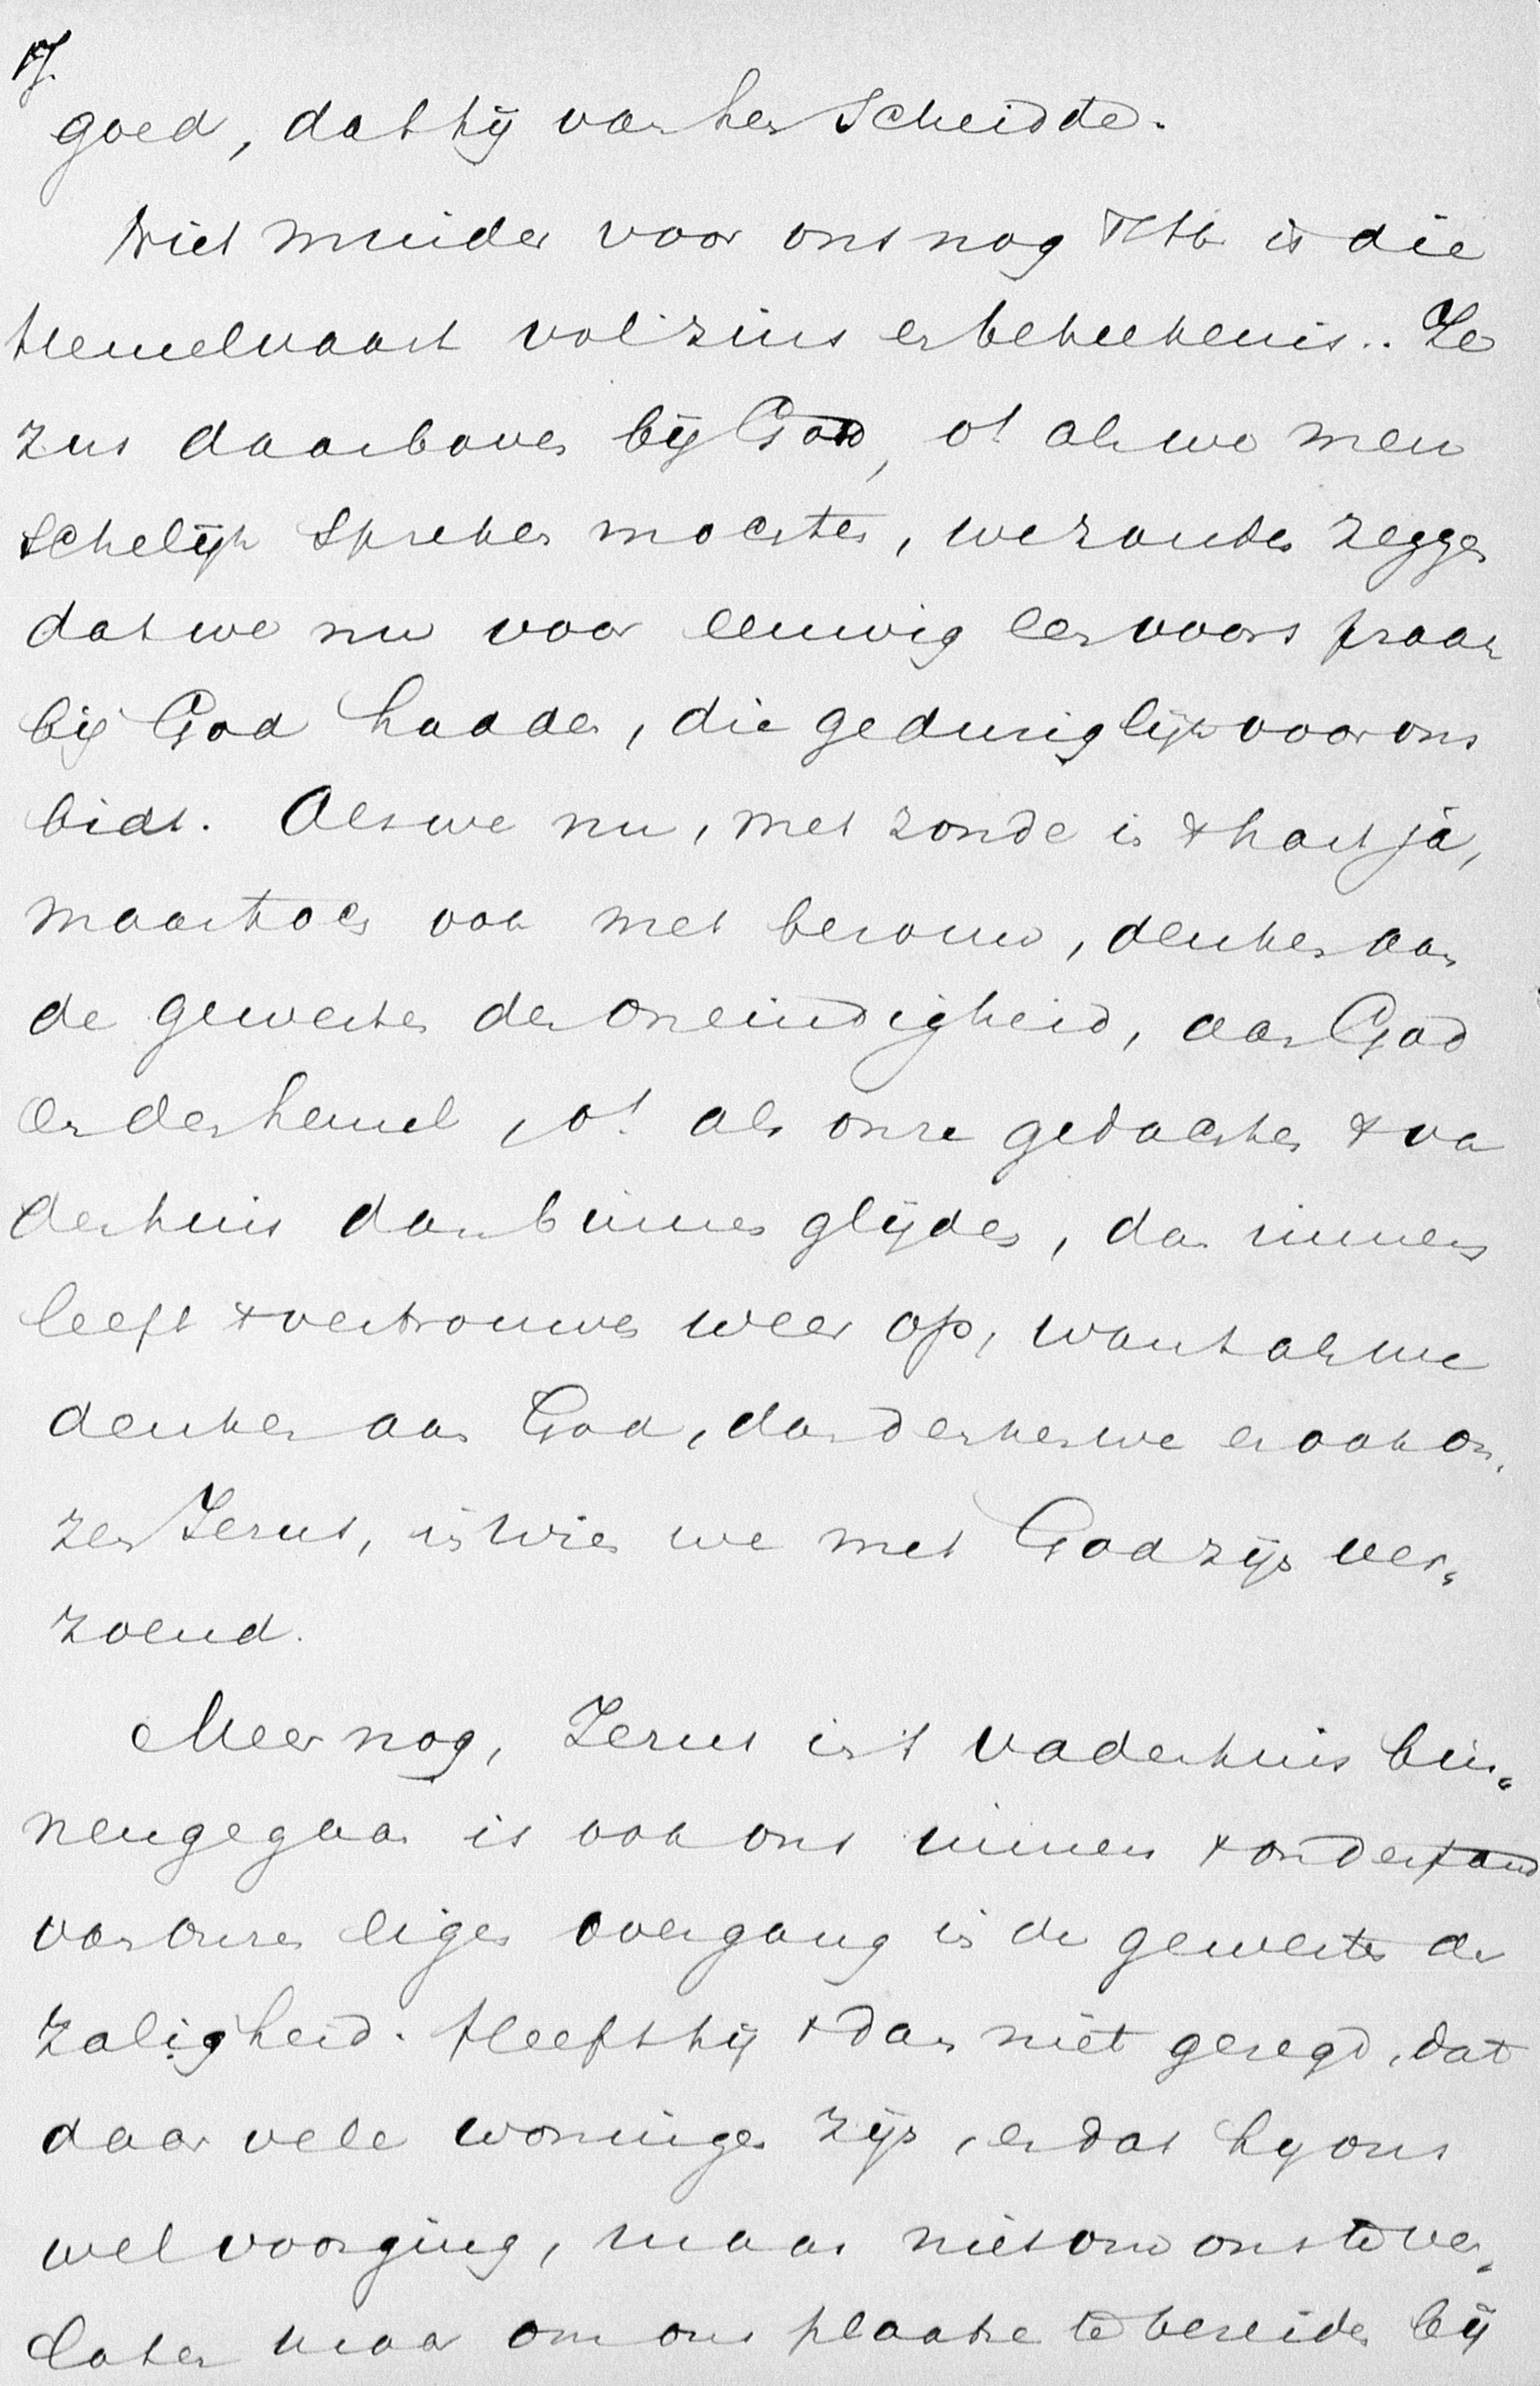 17.
goed, dat hij van hen scheidde.
Niet minder voor ons nog is die
Hemelvaart vol zins en beteekenis.. Je
zus daarboven bij God, o! als we men
schelijk spreken mochten, we zouden zeggen
dat we nu voor eeuwig een voorspraak
bij God hadden, die geduriglijk voor ons
bidt. Als we nu, met zonde in 't hart ja,
maar toch ook met berouw, denken aan
de gewesten der oneindigheid, aan God
en den hemel, o! als onze gedachten 't va
derhuis dan binnen glijden, dan immers
leeft 't vertrouwen weer op, want als we
denken aan God, dan denken we er ook on„
zen Jezus, in wien we met God zijn ver„
zoend.
Meer nog, Jezus in 't vaderhuis bin„
nengegaan is ook ons immers 't onderpand
van onzen eigen overgang in de gewesten der
zaligheid. Heeft hij 't dan niet gezegd, dat
daar vele woningen zijn, en dat hy ons
wel voorging, maar niet om ons te ver„
laten maar om ons plaatse te bereiden bij